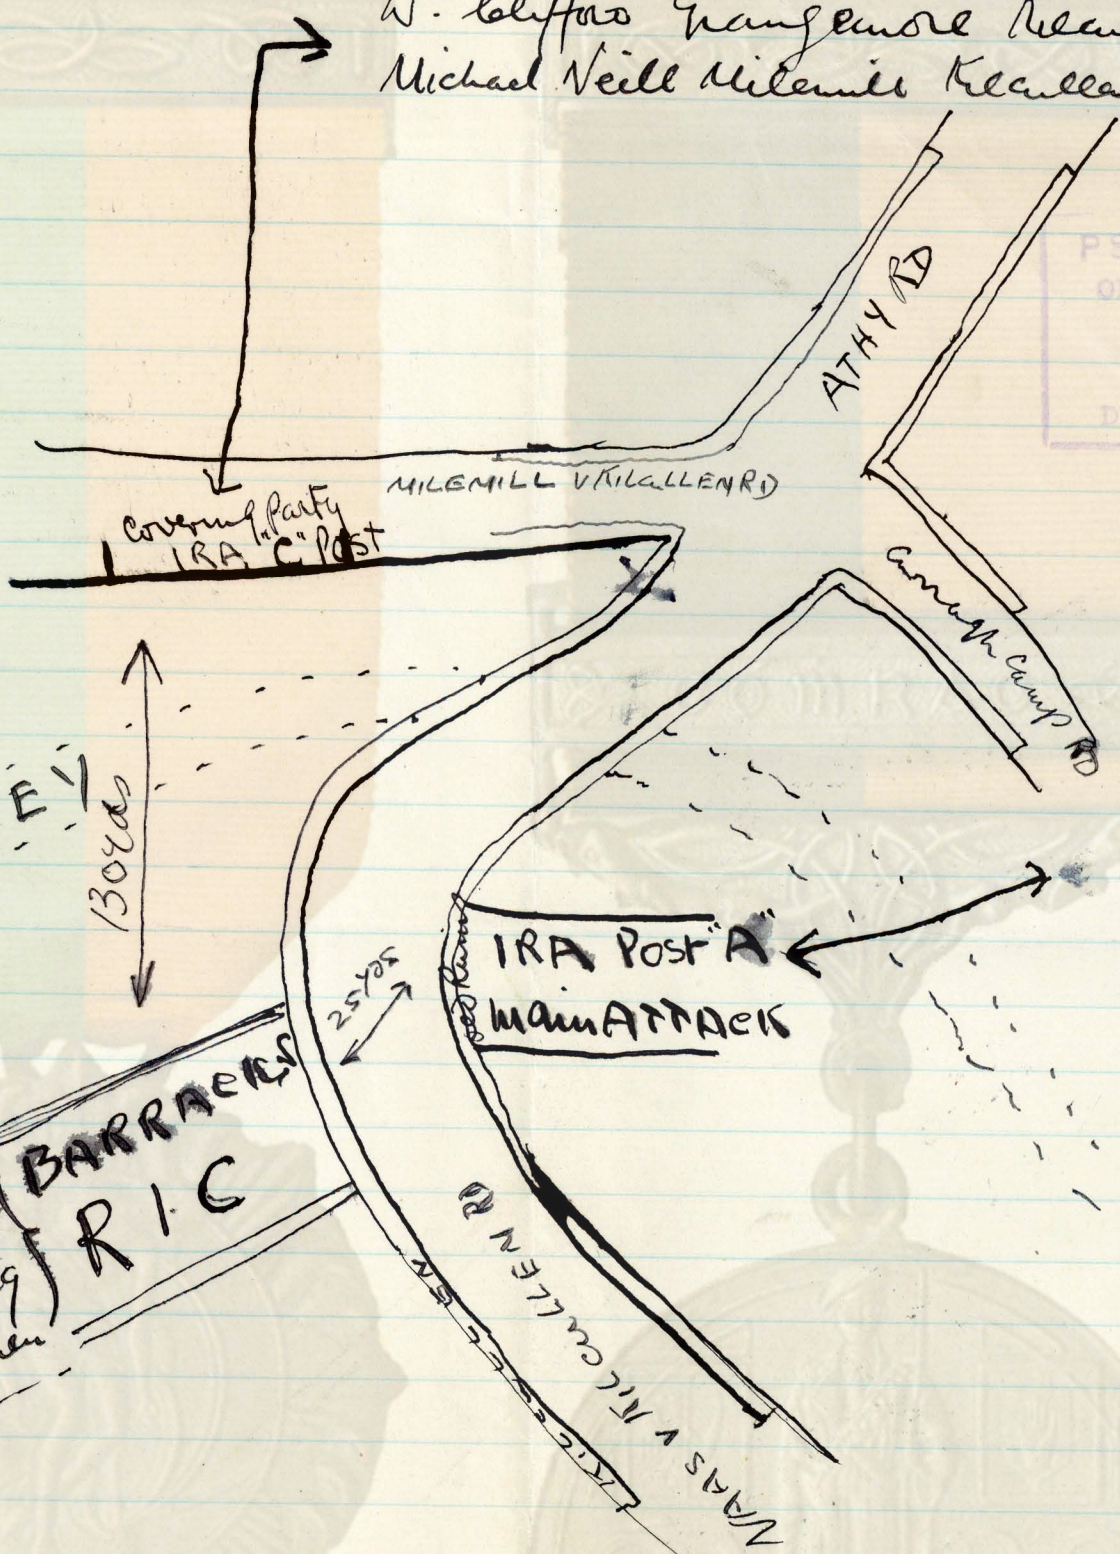 W. Clifford Grangemore
Michael Neill Milemill Kilcullen
ATHY RD
MILEMILL v KILCULLEN RD
Covering Party
IRA "C" Post
Curragh Camp RD
E
130 yds
IRA Post "A"
Main ATTACK
25 yds
BARRACKS
R I C
NAAS v KILCULLEN RD
KILCULLEN